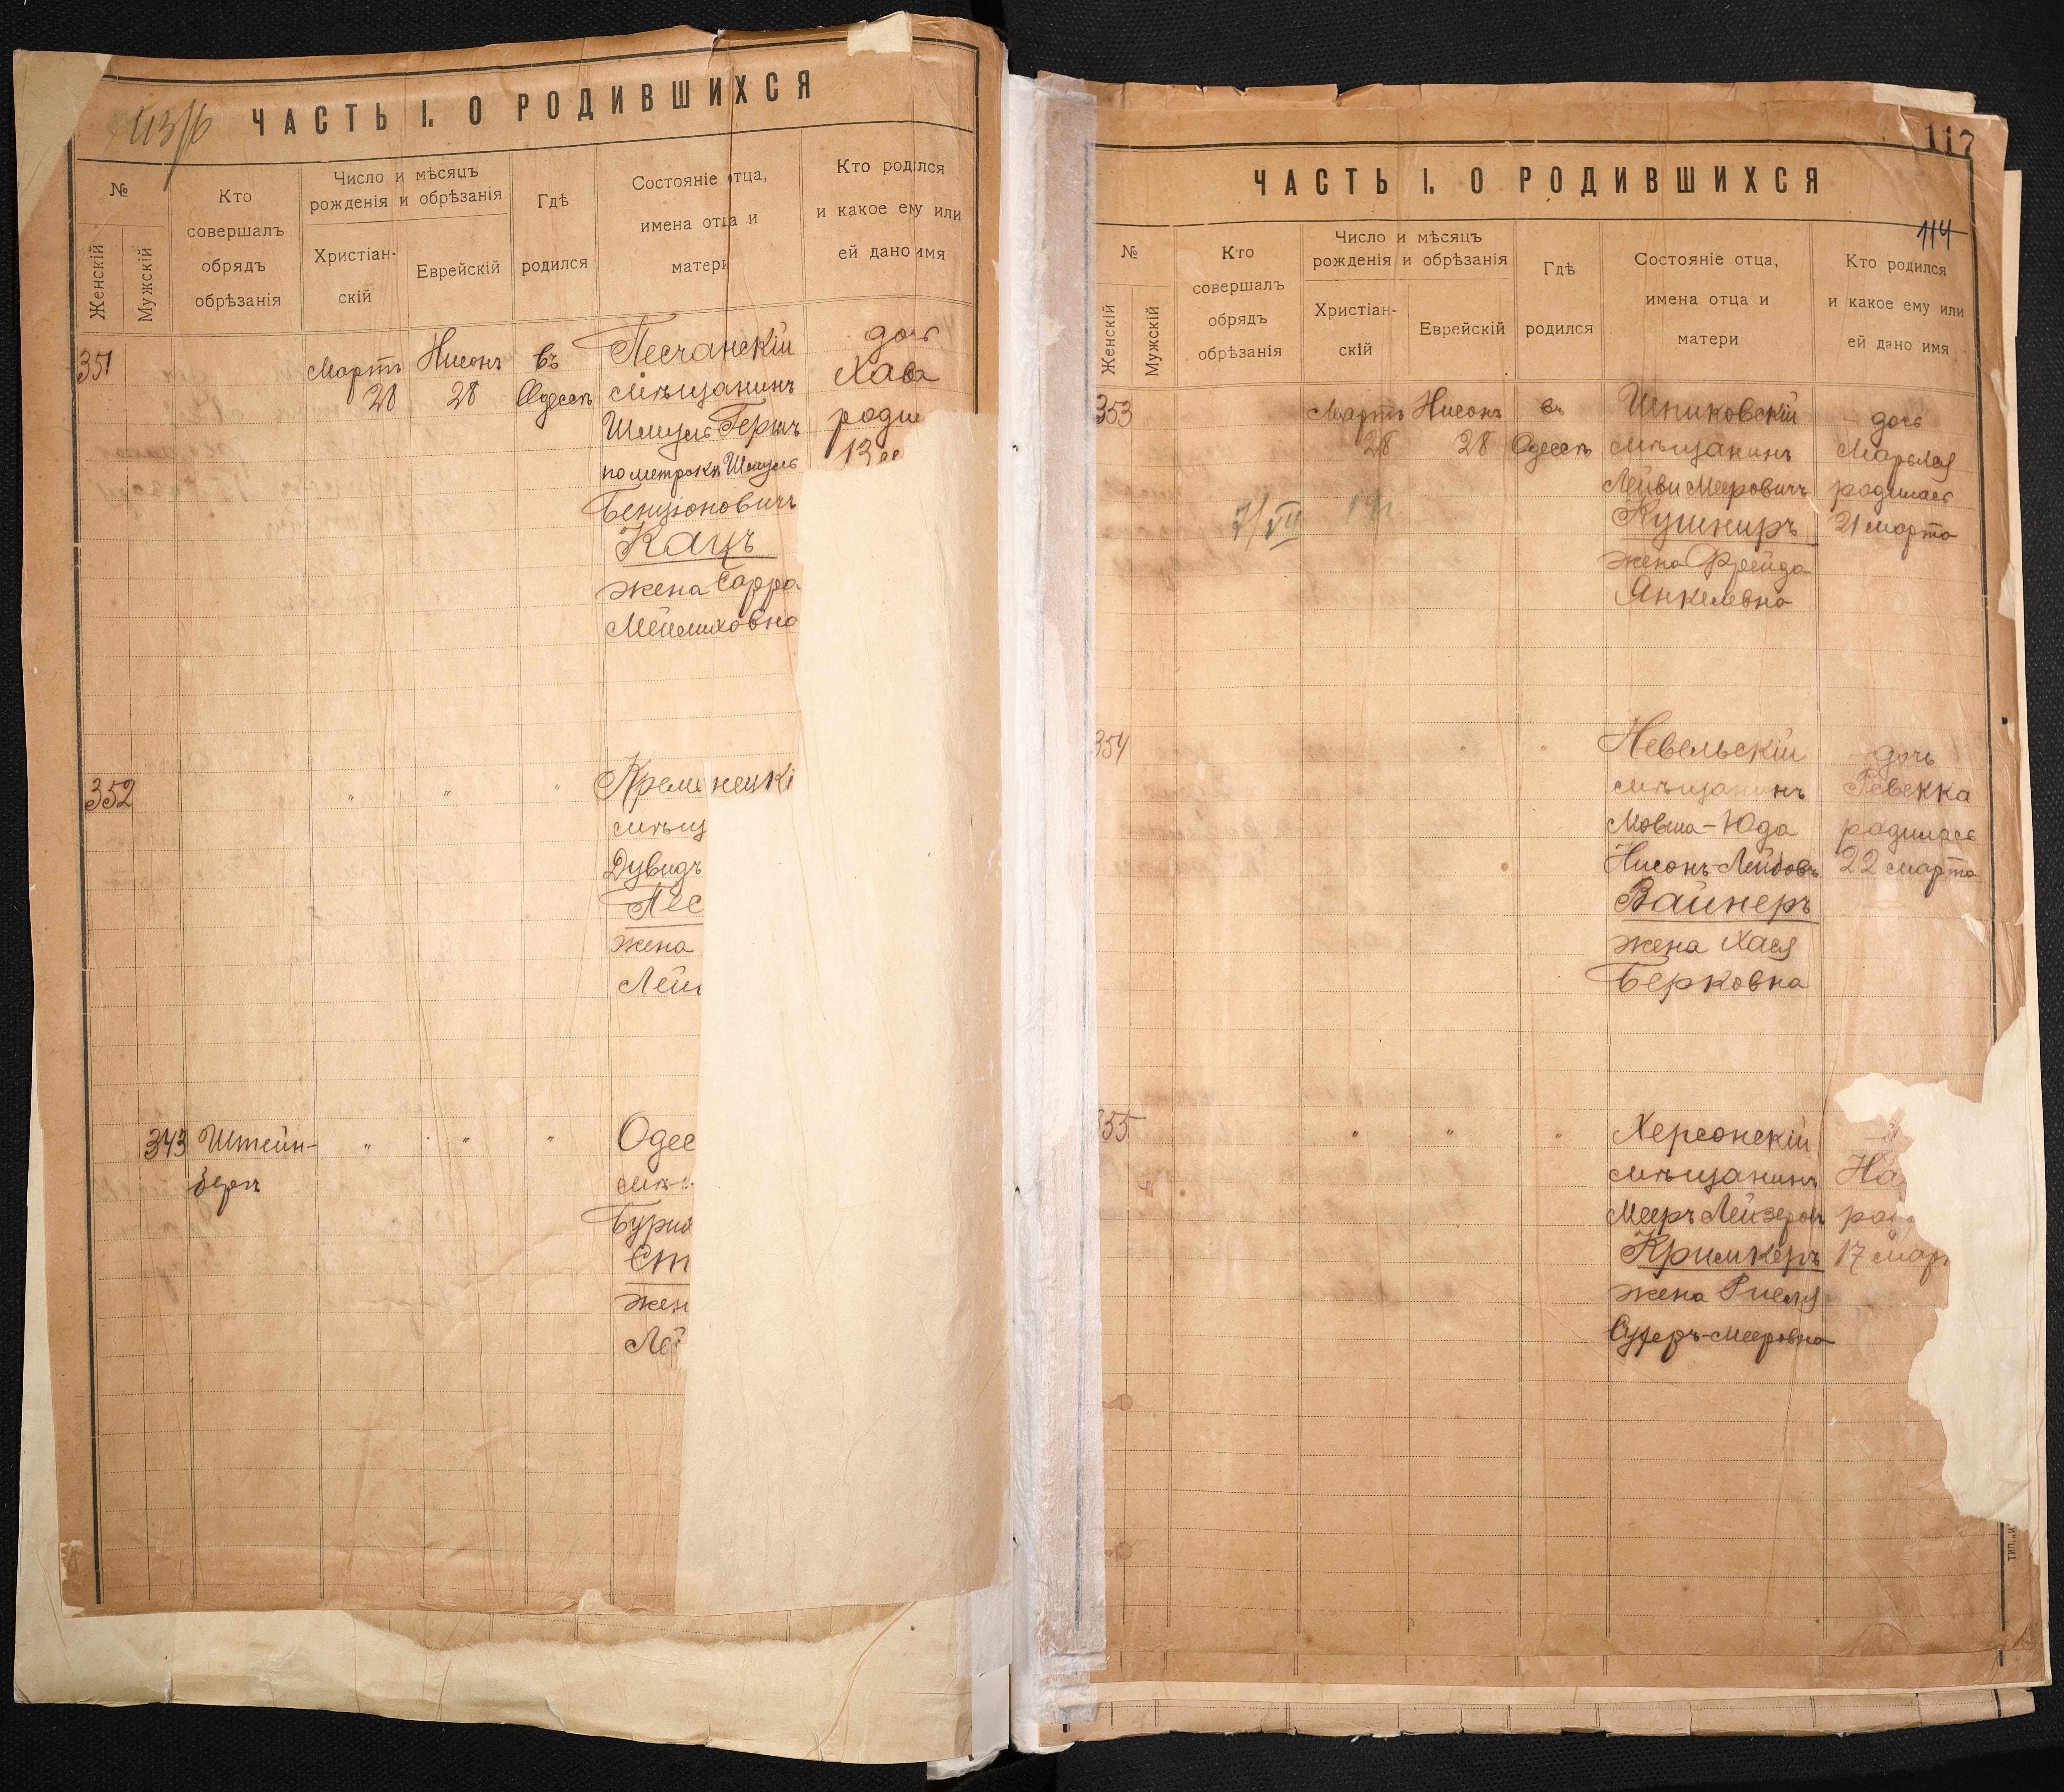 ЧАСТЬ I. О РОДИВШИХСЯ
№
Женскій
Мужскій
Кто
совершалъ
обрядъ
обрѣзанія
Число и мѣсяцъ
рожденія и обрѣзанія
Христіан-
скій
Еврейскій
Гдѣ
родился
Состояніе отца,
имена отца и
матери
Кто родился
и какое ему или
ей дано имя
351
Мартъ
28
Нисонъ
28
въ
Одессѣ
Песчанскій
мѣщанинъ
Шмуль Гершъ
по метрокѣ Шмуль
Бенціоновичъ
Кацъ
жена Сарра
Мейлиховна
дочь
Хава
роди
13
352
" " "
Кременецкі
мѣщ
Дувидъ
Пес
жена
Лей
343
Штейн-
бергъ
" " "
Одес
мѣ
Бурих
Ст
жен
Лей
117
ЧАСТЬ I. О РОДИВШИХСЯ
114
№
Женскій
Мужскій
Кто
совершалъ
обрядъ
обрѣзанія
Число и мѣсяцъ
рожденія и обрѣзанія
Христіан-
скій
Еврейскій
Гдѣ
родился
Состояніе отца,
имена отца и
матери
Кто родился
и какое ему или
ей дано имя
353
Мартъ
28
Нисонъ
28
въ
Одессѣ
7/VII 14г
Шпиковскій
мѣщанинъ
Лейви Мееровичъ
Кушниръ
жена Фрейда
Янкелевна
дочь
Марьяся
родилась
21 марта
354
" "
Невельскій
мѣщанинъ
Мовша-Юда
Нисонъ-Лейбовъ
Вайнеръ
жена Хася
Берковна
дочь
Ревекка
родилась
22 марта
355
" " "
Херсонскій
мѣщанинъ
Мееръ Лейзеров
Кримкеръ
жена Рисля
Суферъ-Мееровна
На
ро
17 мар